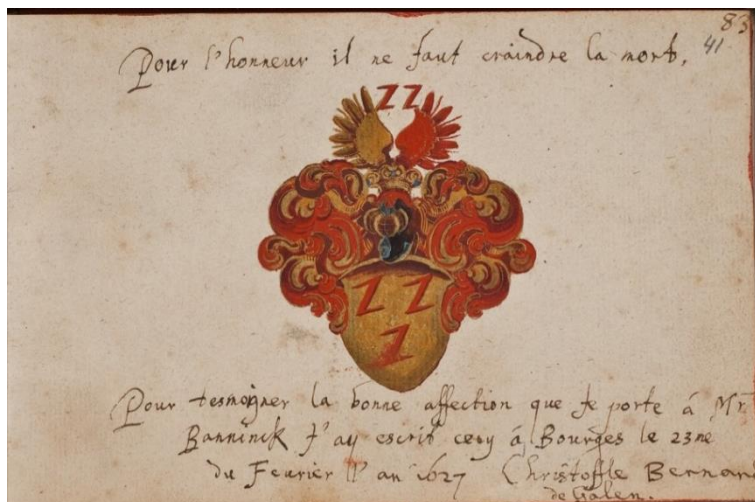 83
41
Pour l'honneur il ne faut craindre la mort.
Z Z
Z Z
Z
Pour tesmoigner la bonne affection que je porte á Mr.
Banninck J'ay escrit cecy á Bourges le 23me
du Feurier l'an 1627 Christoffle Bernard
de Galen